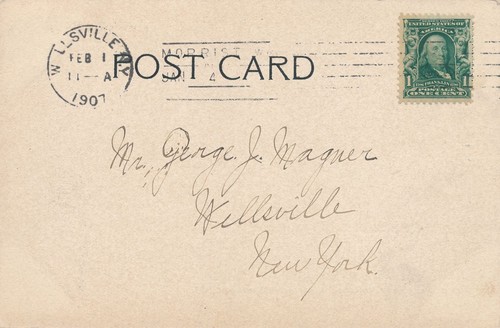 WELLSVILLE N.Y.
FEB 1
11-A
1907
MORRIST
JAN 4
POST CARD
UNITED STATES OF
AMERICA
FRANKLIN
1 1
POSTAGE
ONE CENT
Mr. George J. Magner
Wellsville
New York.